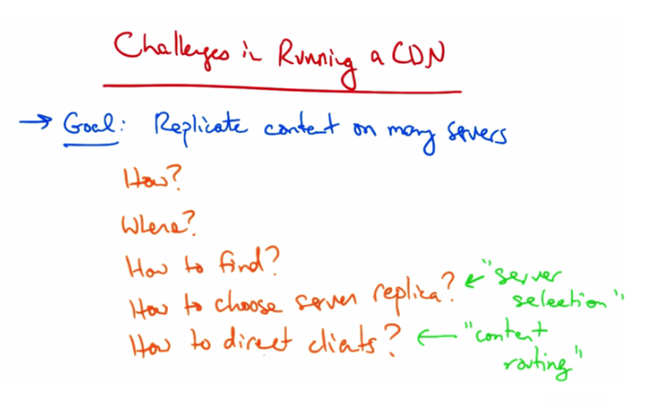 Challenges in Running a CDN
→ Goal: Replicate content on many servers
How?
Where?
How to find?
How to choose server replica? ← "server selection"
How to direct clients? ← "content routing"